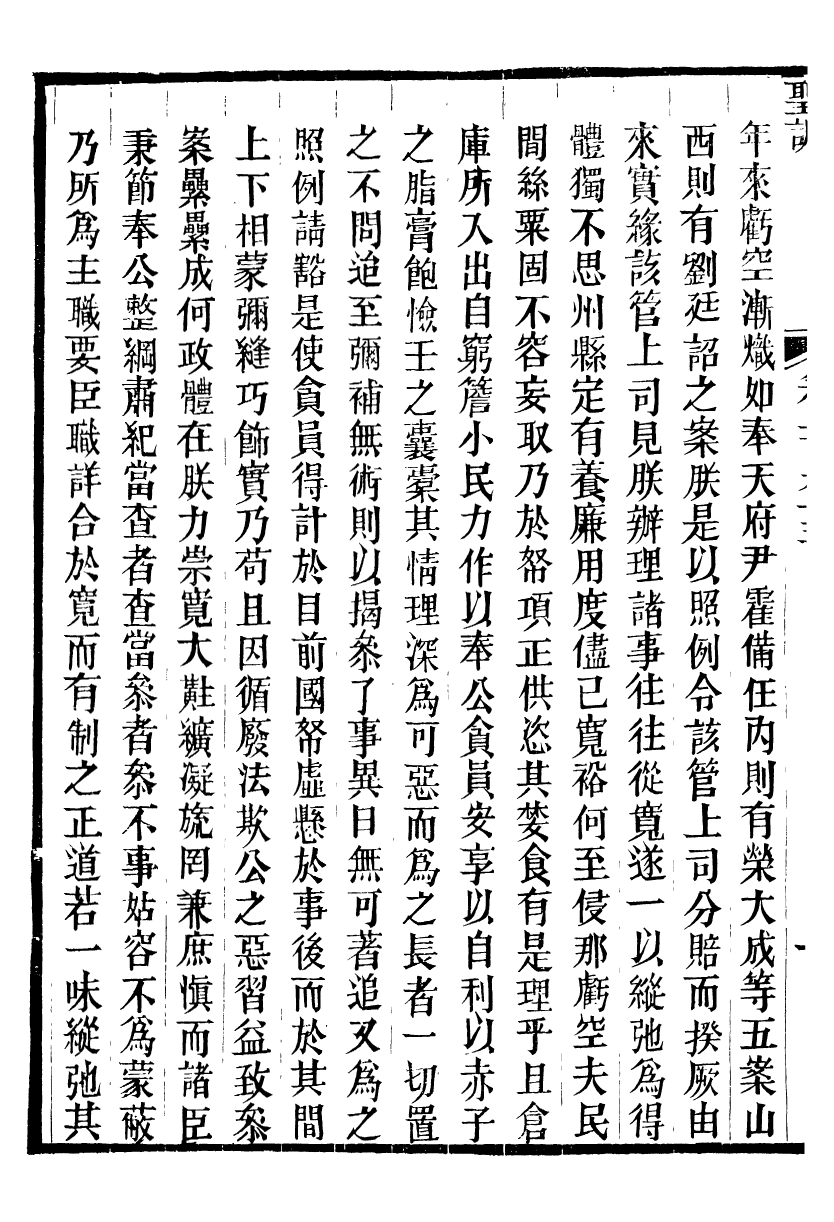 聖訓
年來虧空漸熾如奉天府尹霍備任內則有榮大成等五案山
西則有劉廷詔之案朕是以照例令該管上司分賠而揆厥由
來實緣該管上司見朕辦理諸事往往從寬遂一以縱弛為得
體獨不思州縣定有養廉用度儘已寬裕何至侵那虧空夫民
間絲粟固不容妄取乃於帑項正供恣其婪食有是理乎且倉
庫所入出自窮簷小民力作以奉公貪員安享以自利以赤子
之脂膏飽憸壬之囊槖其情理深為可惡而為之長者一切置
之不問迨至彌補無術則以揭叅了事異日無可著追又為之
照例請豁是使貪員得計於目前國帑虛懸於事後而於其間
上下相蒙彌縫巧飾實乃苟且因循廢法欺公之惡習益致叅
案纍纍成何政體在朕力崇寬大黈纊凝旒罔兼庶愼而諸臣
秉節奉公整綱肅紀當查者查當叅者叅不事姑容不為蒙蔽
乃所為主職要臣職詳合於寬而有制之正道若一味縱弛其